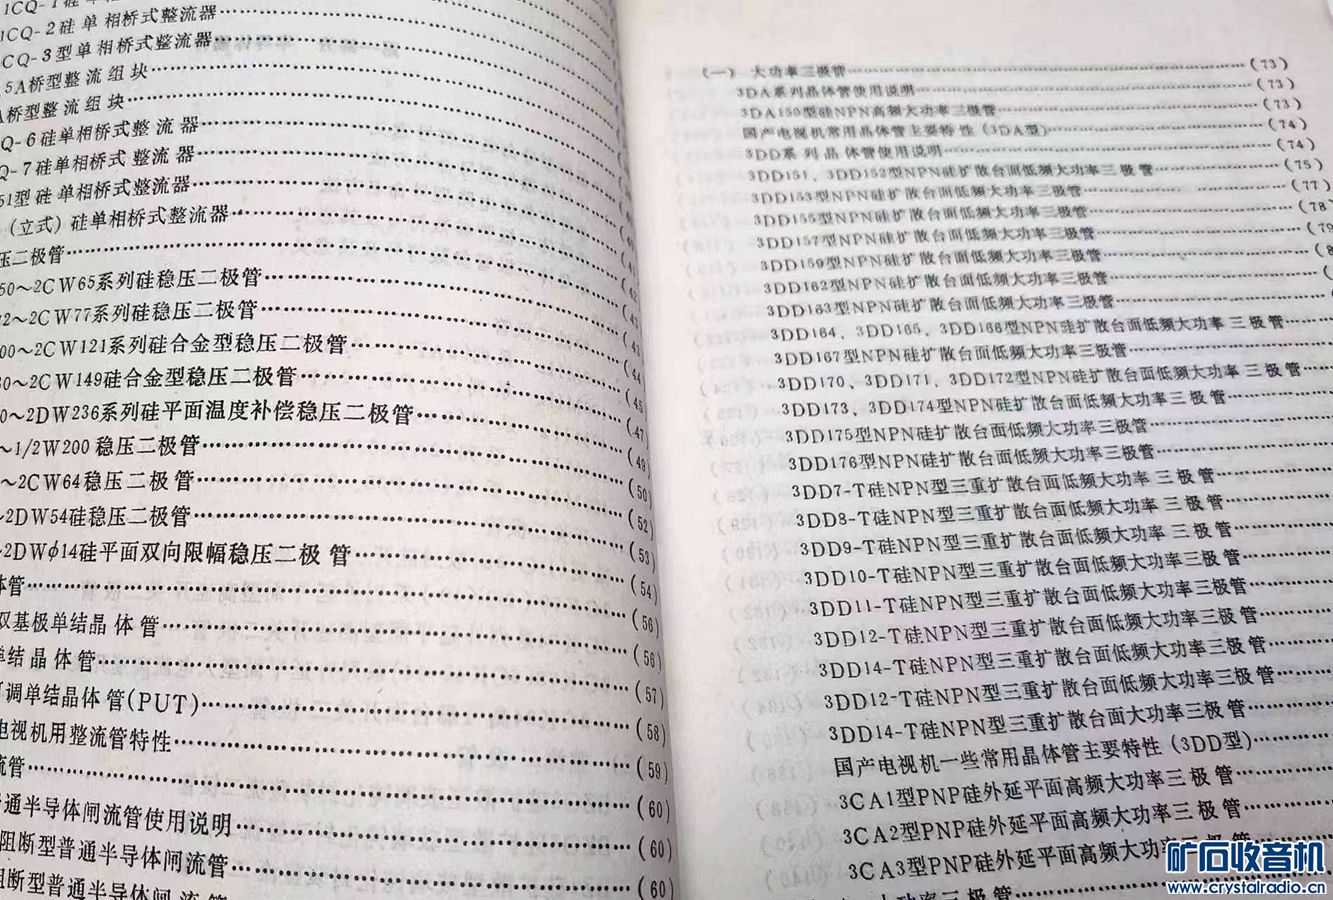 1CQ-1硅单相桥式整流器
1CQ-2硅单相桥式整流器
CQ-3型单相桥式整流器
.5A桥型整流组块
A桥型整流组块
Q-6硅单相桥式整流器
Q-7硅单相桥式整流器
51型硅单相桥式整流器
(立式)硅单相桥式整流器
压二极管
50～2CW65系列硅稳压二极管
2～2CW77系列硅稳压二极管
00～2CW121系列硅合金型稳压二极管
30～2CW149硅合金型稳压二极管
0～2DW236系列硅平面温度补偿稳压二极管……(47)
～1/2W200稳压二极管……(49)
～2CW64稳压二极管……(50)
～2DW54硅稳压二极管……(52)
～2DWφ14硅平面双向限幅稳压二极管……(53)
体管……(54)
双基极单结晶体管……(56)
单结晶体管……(56)
可调单结晶体管(PUT)……(57)
电视机用整流管特性……(58)
流管……(59)
普通半导体闸流管使用说明……(60)
阻断型普通半导体闸流管……(60)
阻断型普通半导体闸流管……(60)
(一) 大功率三极管……(73)
3DA系列晶体管使用说明……(73)
3DA150型硅NPN高频大功率三极管……(73)
国产电视机常用晶体管主要特性(3DA型)……(74)
3DD系列晶体管使用说明……(74)
3DD151、3DD152型NPN硅扩散台面低频大功率三极管……(75)
3DD153型NPN硅扩散台面低频大功率三极管……(77)
3DD155型NPN硅扩散台面低频大功率三极管……(78)
3DD157型NPN硅扩散台面低频大功率三极管……(79
3DD159型NPN硅扩散台面低频大功率三极管……(8
3DD162型NPN硅扩散台面低频大功率三极管
3DD163型NPN硅扩散台面低频大功率三极管
3DD164、3DD165、3DD166型NPN硅扩散台面低频大功率三极管
3DD167型NPN硅扩散台面低频大功率三极管
3DD170、3DD171、3DD172型NPN硅扩散台面低频大功率三极管
3DD173、3DD174型NPN硅扩散台面低频大功率三极管
3DD175型NPN硅扩散台面低频大功率三极管
3DD176型NPN硅扩散台面低频大功率三极管
3DD7-T硅NPN型三重扩散台面低频大功率三极管
3DD8-T硅NPN型三重扩散台面低频大功率三极管
3DD9-T硅NPN型三重扩散台面低频大功率三极管
3DD10-T硅NPN型三重扩散台面低频大功率三极管
3DD11-T硅NPN型三重扩散台面低频大功率三极管
3DD12-T硅NPN型三重扩散台面低频大功率三极管
3DD14-T硅NPN型三重扩散台面低频大功率三极管
3DD12-T硅NPN型三重扩散台面低频大功率三极管
3DD14-T硅NPN型三重扩散台面大功率三极管
国产电视机一些常用晶体管主要特性(3DD型)
3CA1型PNP硅外延平面高频大功率三极管
3CA2型PNP硅外延平面高频大功率三极管
3CA3型PNP硅外延平面高频大功率三极管
大功率三极管
矿石收音机
www.crystalradio.cn